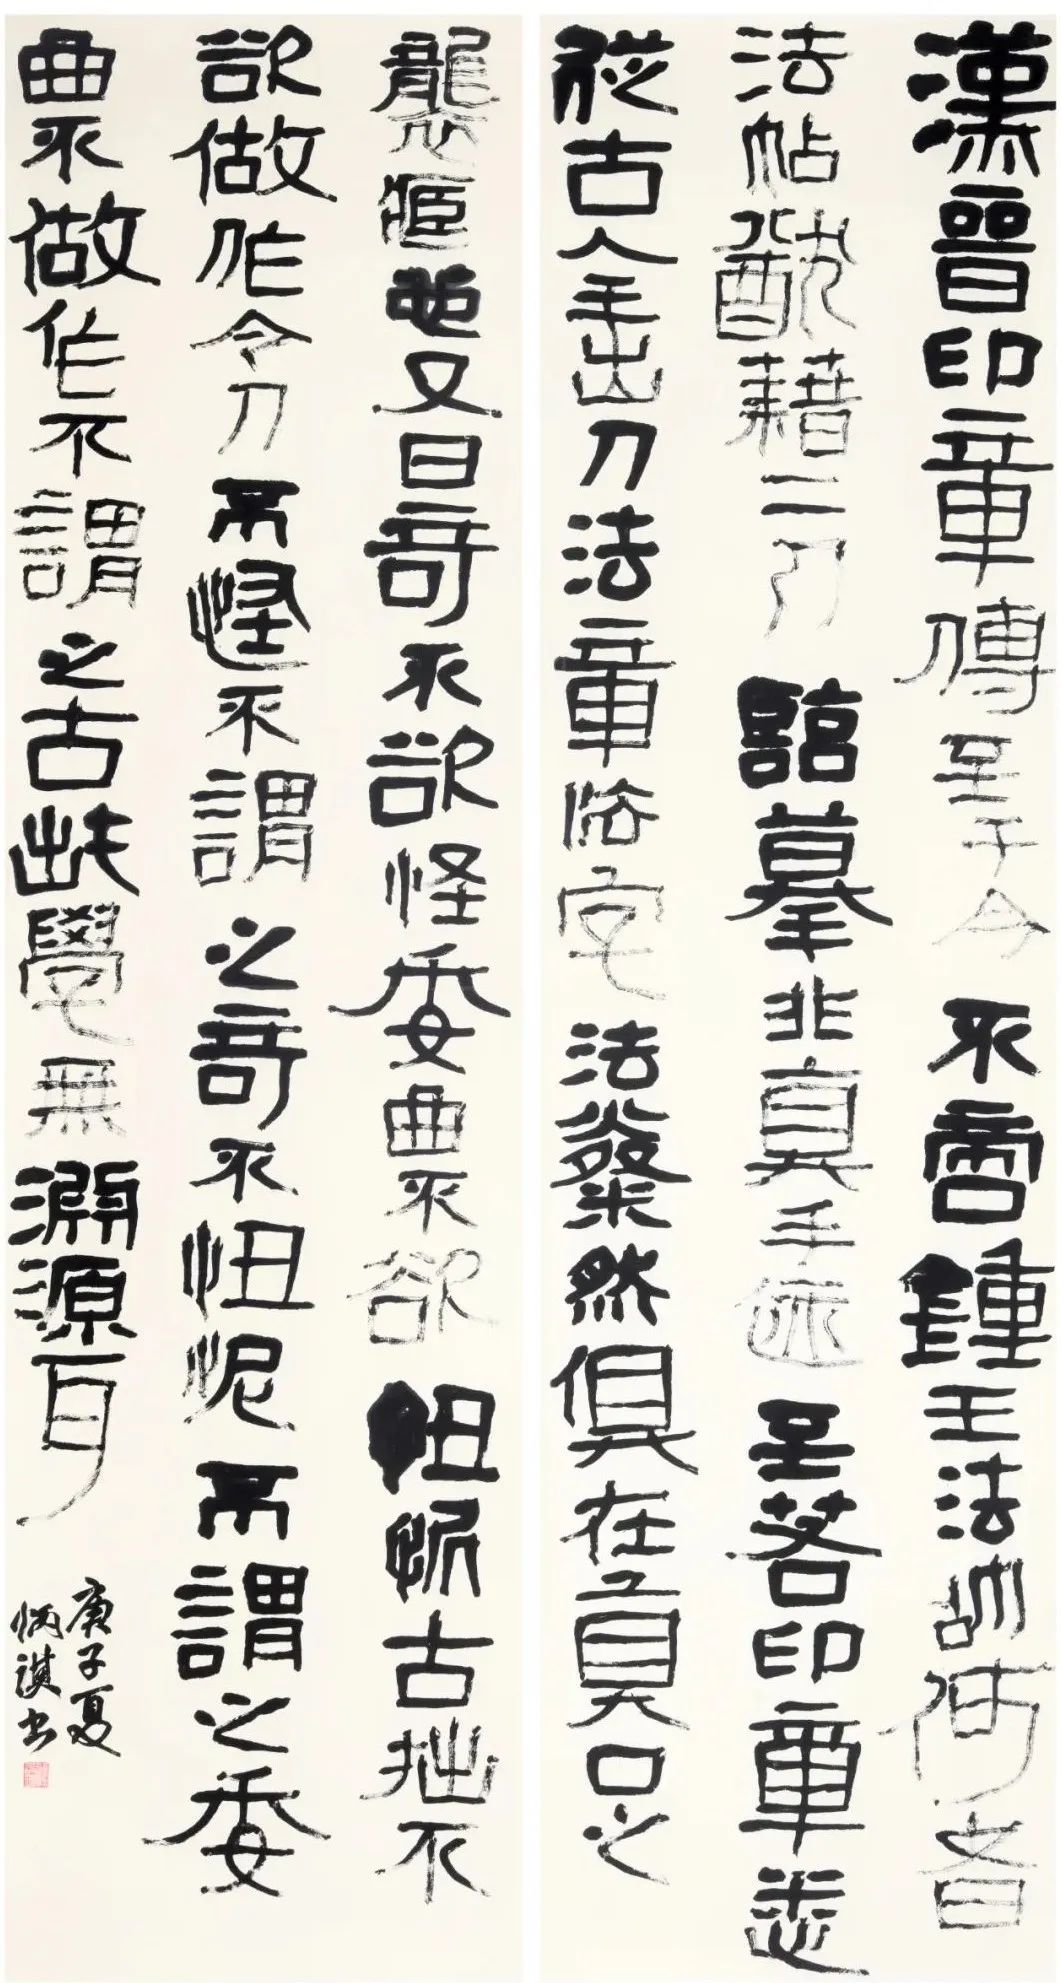 漢晉印章傳至于今不啻鍾王法故何者
法帖猶藉二刀臨摹非真手迹至若印章悉
從古人手出刀法章法字法粲然俱在真口之
襲也又曰奇不欲怪委曲不欲忸怩古拙不
欲做作令刀而怪不謂之奇不忸怩而謂之委
曲不做作不謂之古此學無淵源耳
庚子夏
炳淇書